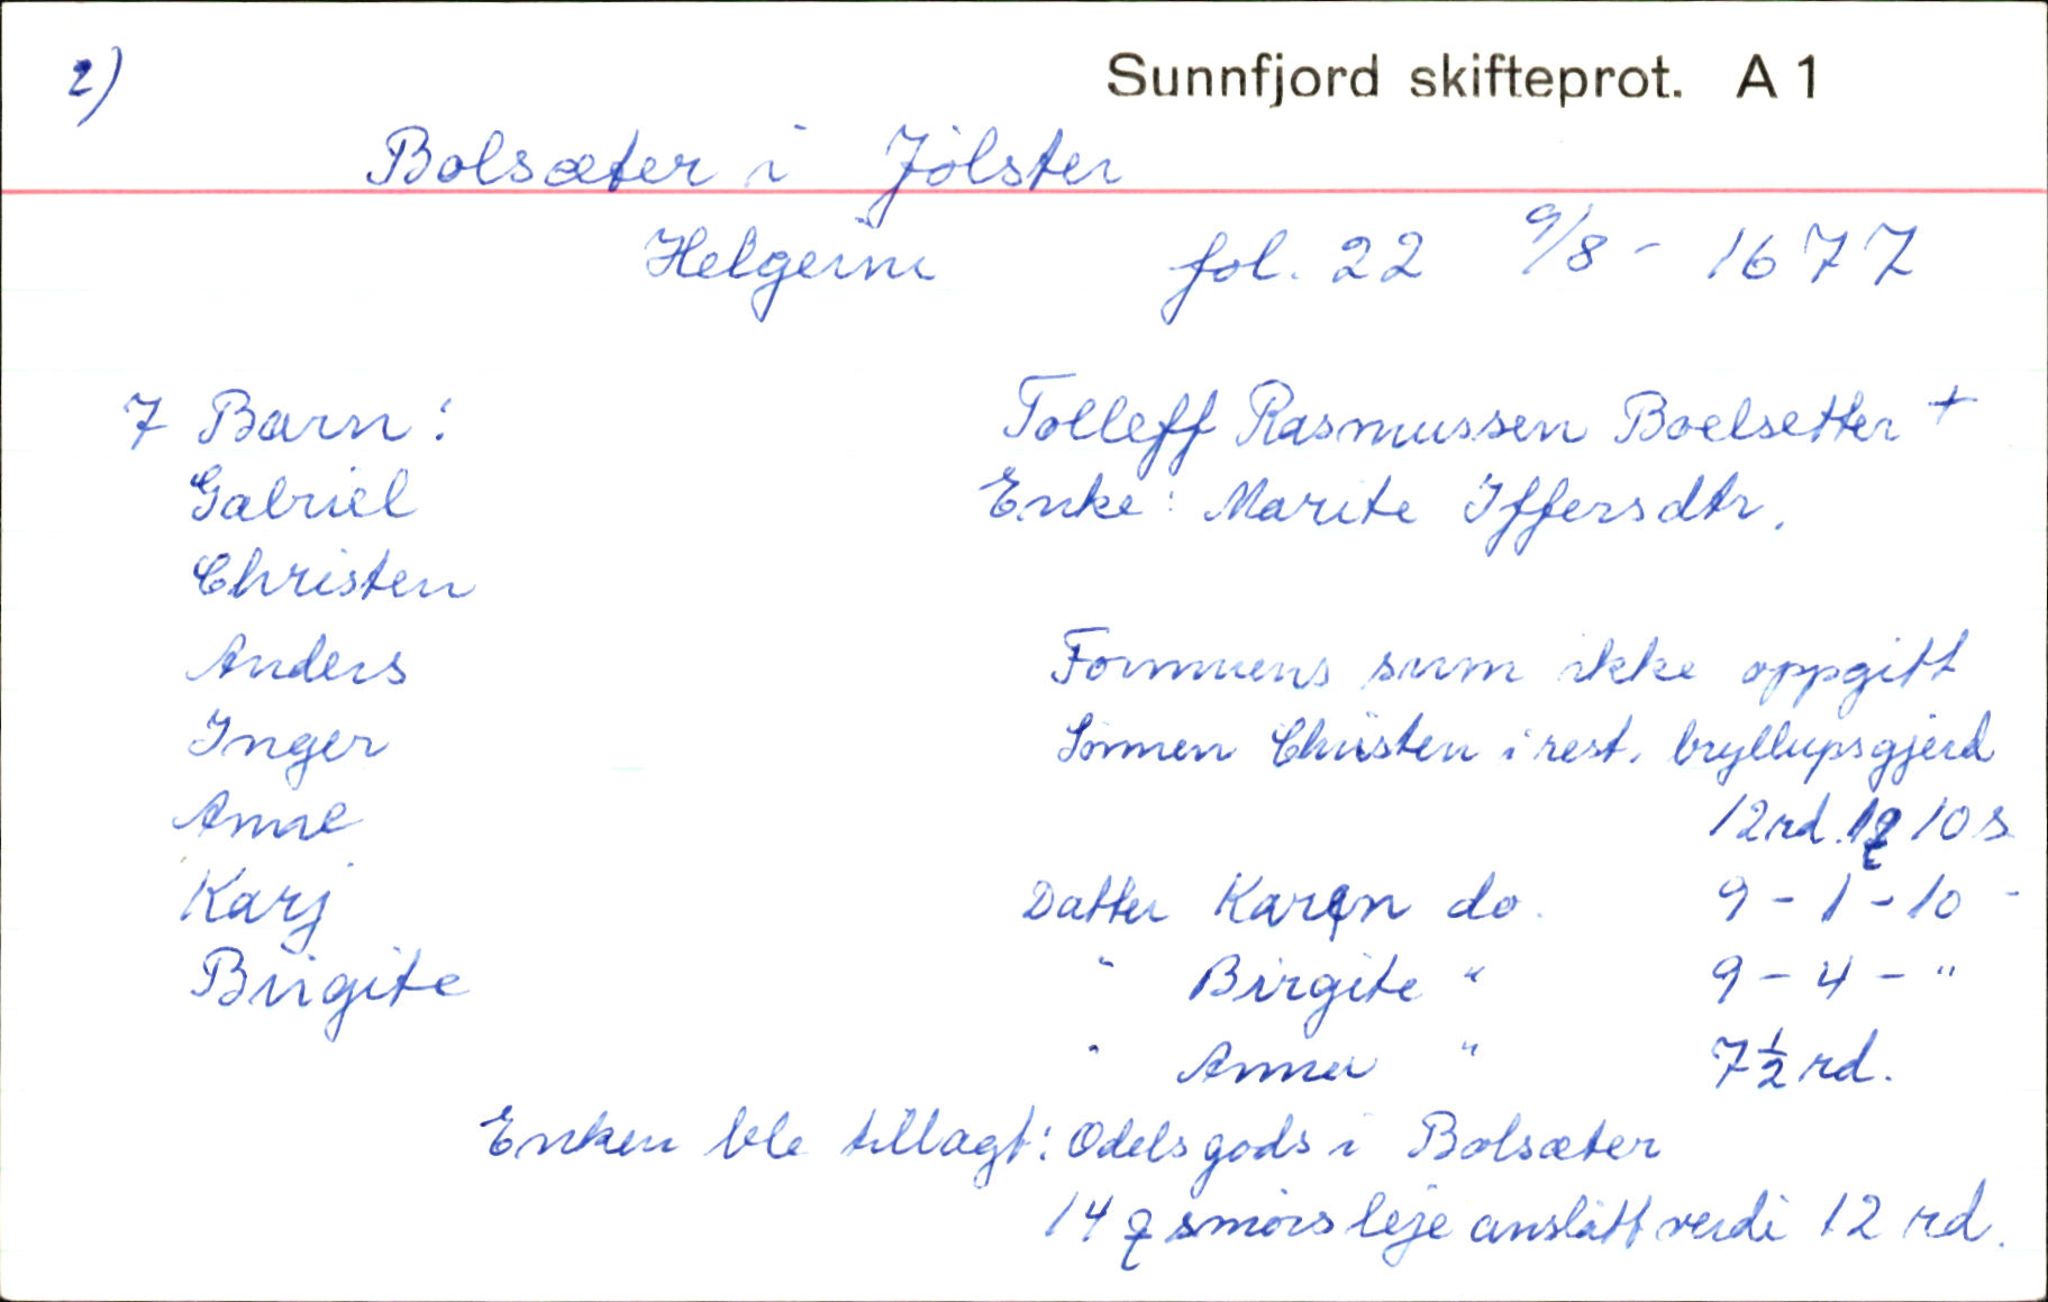 2)
Sunnfjord skifteprot. A 1
Bolsæter i Jølster
Helgeim fol. 22 9/8 - 1677
7 Barn: Tolleff Rasmussen Boelsetter +
Gabriel Enke: Marite Iffersdtr.
Christen
Anders Formuens sum ikke oppgitt
Inger Sønnen Christen i rest. bryllupsgjerd
Anne 12 rd. 1 10 s
Karj Datter Karen do. 9 - 1 - 10 -
Birgite " Birgite " 9 - 4 - "
" Anna " 7 ½ rd.
Enken ble tillagt: Odelsgods i Bolsæter
14 smørs leje anslått verdi 12 rd.